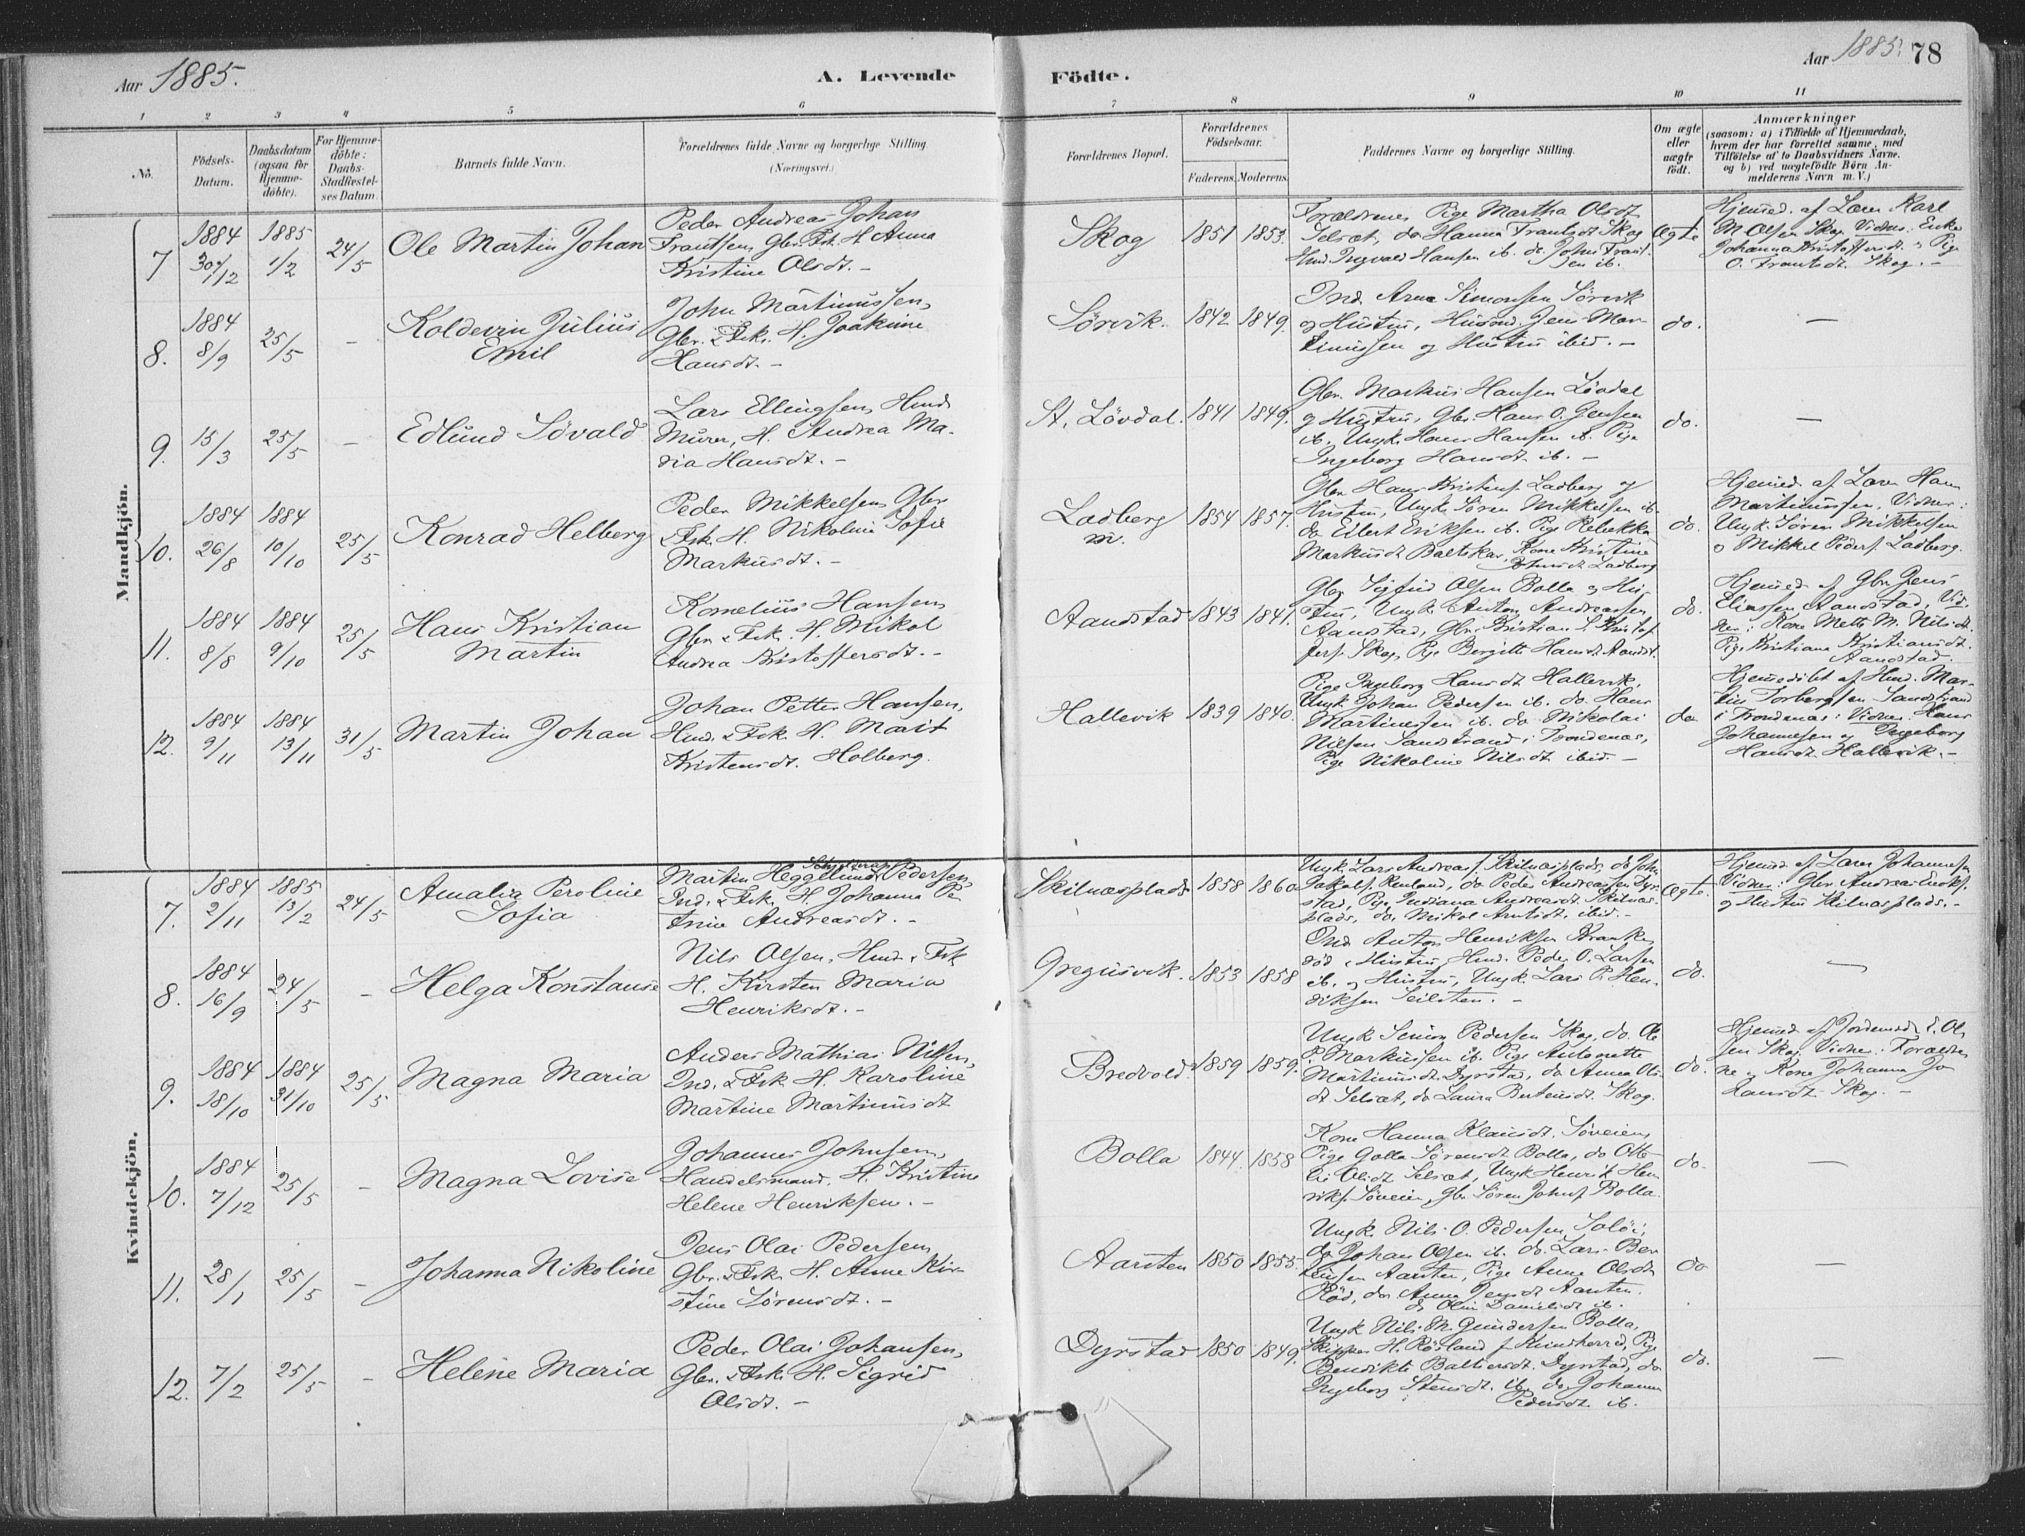 Aar 1885.
A. Levende
Födte.
Aar 1885. 78
1 2 3 4 5 6 7 8 9 10 11
No.
Födsels-
Datum.
Daabsdatum
(ogsaa for
Hjemme-
döbte).
For Hjemme-
döbte:
Daabs-
Stadfæstel-
ses Datum.
Barnets fulde Navn.
Forældrenes fulde Navne og borgerlige Stilling
(Næringsvei.)
Forældrenes Bopæl.
Forældrenes
Födselsaar.
Faderens. Moderens.
Faddernes Navne og borgerlige Stilling.
Om ægte
eller
uægte
födt.
Anmærkninger
(saasom: a) i Tilfælde af Hjemmedaab,
hvem der har forrettet samme, med
Tilföielse af to Daabsvidners Navne.
og b) ved uægtefödte Börn An-
melderens Navn m. V.)
Mandkjön.
7 1884 30/12 1885 1/2 24/5 Ole Martin Johan
Peder Andreas Johan
Frantssen, Gbr. Fsk. H. Anna
Kristine Olsdt. –
Skog 1851 1853.
Forældrene, Pige Martha Olsdt
Selsæt, do Hanna Frantsdt Skog
Hmd. Ingvald Hansen ib. do. John Frant-
sen ib.
Ægte
Hjemmed. af Lærer Karl
M. Olsen Skog. Vidner: Enke
Johanna Kristoffersdt. og Pige
O. Frantsdt. Skog. –
8. 1884 8/9 25/5 – Koldevin Julius
Emil
John Martinussen,
Gbr. & Fsk. H. Joakime
Hansdt. –
Sörvik. 1842 1849.
Ind. Arne Simonsen Sörvik
og Hustru, Husmd. Jens Mar-
tinussen og Hustru ibid. –
do. –
9. 15/3 25/5 – Edlund Sövald
Lars Ellingsen, Hmd.
Murer, H. Andrea Ma-
ria Hansdt. –
St. Lövdal. 1841 1849.
Gbr. Markus Hansen Lövdal
og Hustru, Gbr. Hans O. Jenssen
ib. Ungk. Hans Hansen ib. Pige
Ingeborg Hansdt ib. –
do. –
10. 1884 26/8 1884 10/10 25/5 Konrad Helberg
Peder Mikkelsen, Gbr
& Fsk. H. Nikoline Sofie
Markusdt. –
Ladberg
m.
1854 1857.
Gbr. Hans Kristens. Ladberg og
Hustru, Ungk. Sören Mikkelsen ib.
do Eilert Eriksen ib. Pige Rebekka
Markusdt Baltskar, Kone Kristine
Johnsdt Ladberg
do.
Hjemmed. af Lærer Hans
Martinussen, Vidner:
Ungk. Sören Mikkelsen
og Mikkel Peders. Ladberg.
11. 1884 8/8 1884 9/10 25/5 Hans Kristian
Martin
Kornelius Hansen,
Gbr. & Fsk. H. Mikol
Andrea Kristoffersdt. –
Aandstad 1843 1841.
Gbr. Sigfrid Olsen Bolla og Hu-
stru, Ungk. Anton Andreassen
Aandstad, Gbr. Kristian S. Kristof-
fers. Skog, Pige Bergitte Hansdt Aandst.
do.
Hjemmed. af Gbr. Jens
Eliassen Aandstad, Vid-
ner: Kone Mette M. Nilsdt.
Pige Kristiane Kristiansdt.
Aandstad.
12. 1884 9/11 1884 13/11 31/5 Martin Johan
Johan Petter Hansen,
Hmd. & Fsk. H. Marit
Kristensdt. Holberg.
Hallevik 1839 1840.
Pige Ingeborg Hansdt Hallevik,
Ungk. Johan Pedersen ib. do. Hans
Martinessen ib. do Nikolai
Nilsen Sandstrand i Trondenæs,
Pige Nikoline Nilsdt ibid. –
do
Hjemmedöbt af Hmd. Mar-
tin Torbergsen Sandstrand
i Trondenæs: Vidner: Hans
Johannesen og Ingeborg
Hansdt. Hallevik. –
Kvindekjön.
7. 1884 2/11 1885 13/2 24/5 Amalia Peroline
Sofia
Martin Heggelund Pedersen,
Ind. & Fsk. H. Johanna Pe-
trine Andreasdt. –
Skilnæsplads 1858 1860
Ungk. Lars Andreas s. Skilnæsplads, do Joh.
Jakobs. Renland, do Peder Andreassen Dyr-
stad, Pige Indiana Andreasdt. Skilnæs-
plads, do. Mikol Arntsdt. ibid. –
Ægte.
Hjemmed. af Lærer Johannesen
Vidner: Gbr. Andreas Enoks.
og Hustru Skilnæsplads. –
8. 1884 16/9 24/5 – Helga Konstanse
Nils Olsen, Hmd. & Fsk
H. Kirsten Maria
Henriksdt. –
Gregusvik. 1853 1858
Ind Anton Henriksen Kranke-
röd & Hustru, Hmd. Peder O. Larsen
ib. og Hustru, Ungk. Lars P. Hen-
riksen Seilsten. –
do. –
9. 1884 18/10 1884 31/10 25/5 Magna Maria
Anders Mathias Nilsen,
Ind. & Fsk. H. Karoline
Martine Martinusdt
Bredvold. 1859 1859.
Ungk Simon Pedersen Skog, do Ole
P. Markussen ib. Pige Antonette
Martinusdt. Dyrstad, do Anna Ols-
dt Selsæt, do Laura Bertensdt. Skog.
do.
Hjemmed. af Jordemoder E. Ol-
sen Skog. Vidner: Forældre-
ne og Kone Johanna Jo-
hansdt. Skog. –
10. 1884 7/12 25/5 – Magna Lovise
Johannes Johnsen,
Handelsmand, H. Kristine
Helene Henriksen. –
Bolla 1844. 1858
Kone Hanna Klausdt. Söveien,
Pige Golla Sörensdt Bolla, do Otte-
lie Olsdt Selsæt, Ungk Henrik Hen-
riks. Söveien, Gbr. Sören Johns. Bolla.
do. –
11. 28/1 25/5 – Johanna Nikoline
Jens Olai Pedersen,
Gbr. & Fsk. H. Anne Kir-
stine Sörensdt. –
Aarsten 1850 1855.
Ungk. Nils O. Pedersen Salöi,
do Johan Olsen ib. do. Lars Ber-
tensen Aarsten, Pige Anne Olsdt
Röd, do Anna Jensdt Aarsten.
do Olin Danielsdt ib.
do –
12. 7/2 25/5 – Helene Maria
Peder Olai Johansen,
Gbr. & Fsk. H. Sigrid
Olsdt. –
Dyrstad 1850 1849.
Ungk Nils M. Gundersen Bolla,
Skipper H. Röland f. Kvindherred, Pige
Bendikte Baltsersdt. Dyrstad, do
Ingeborg Stensdt. ib. do Johanna
Pedersdt. ib.
do. –